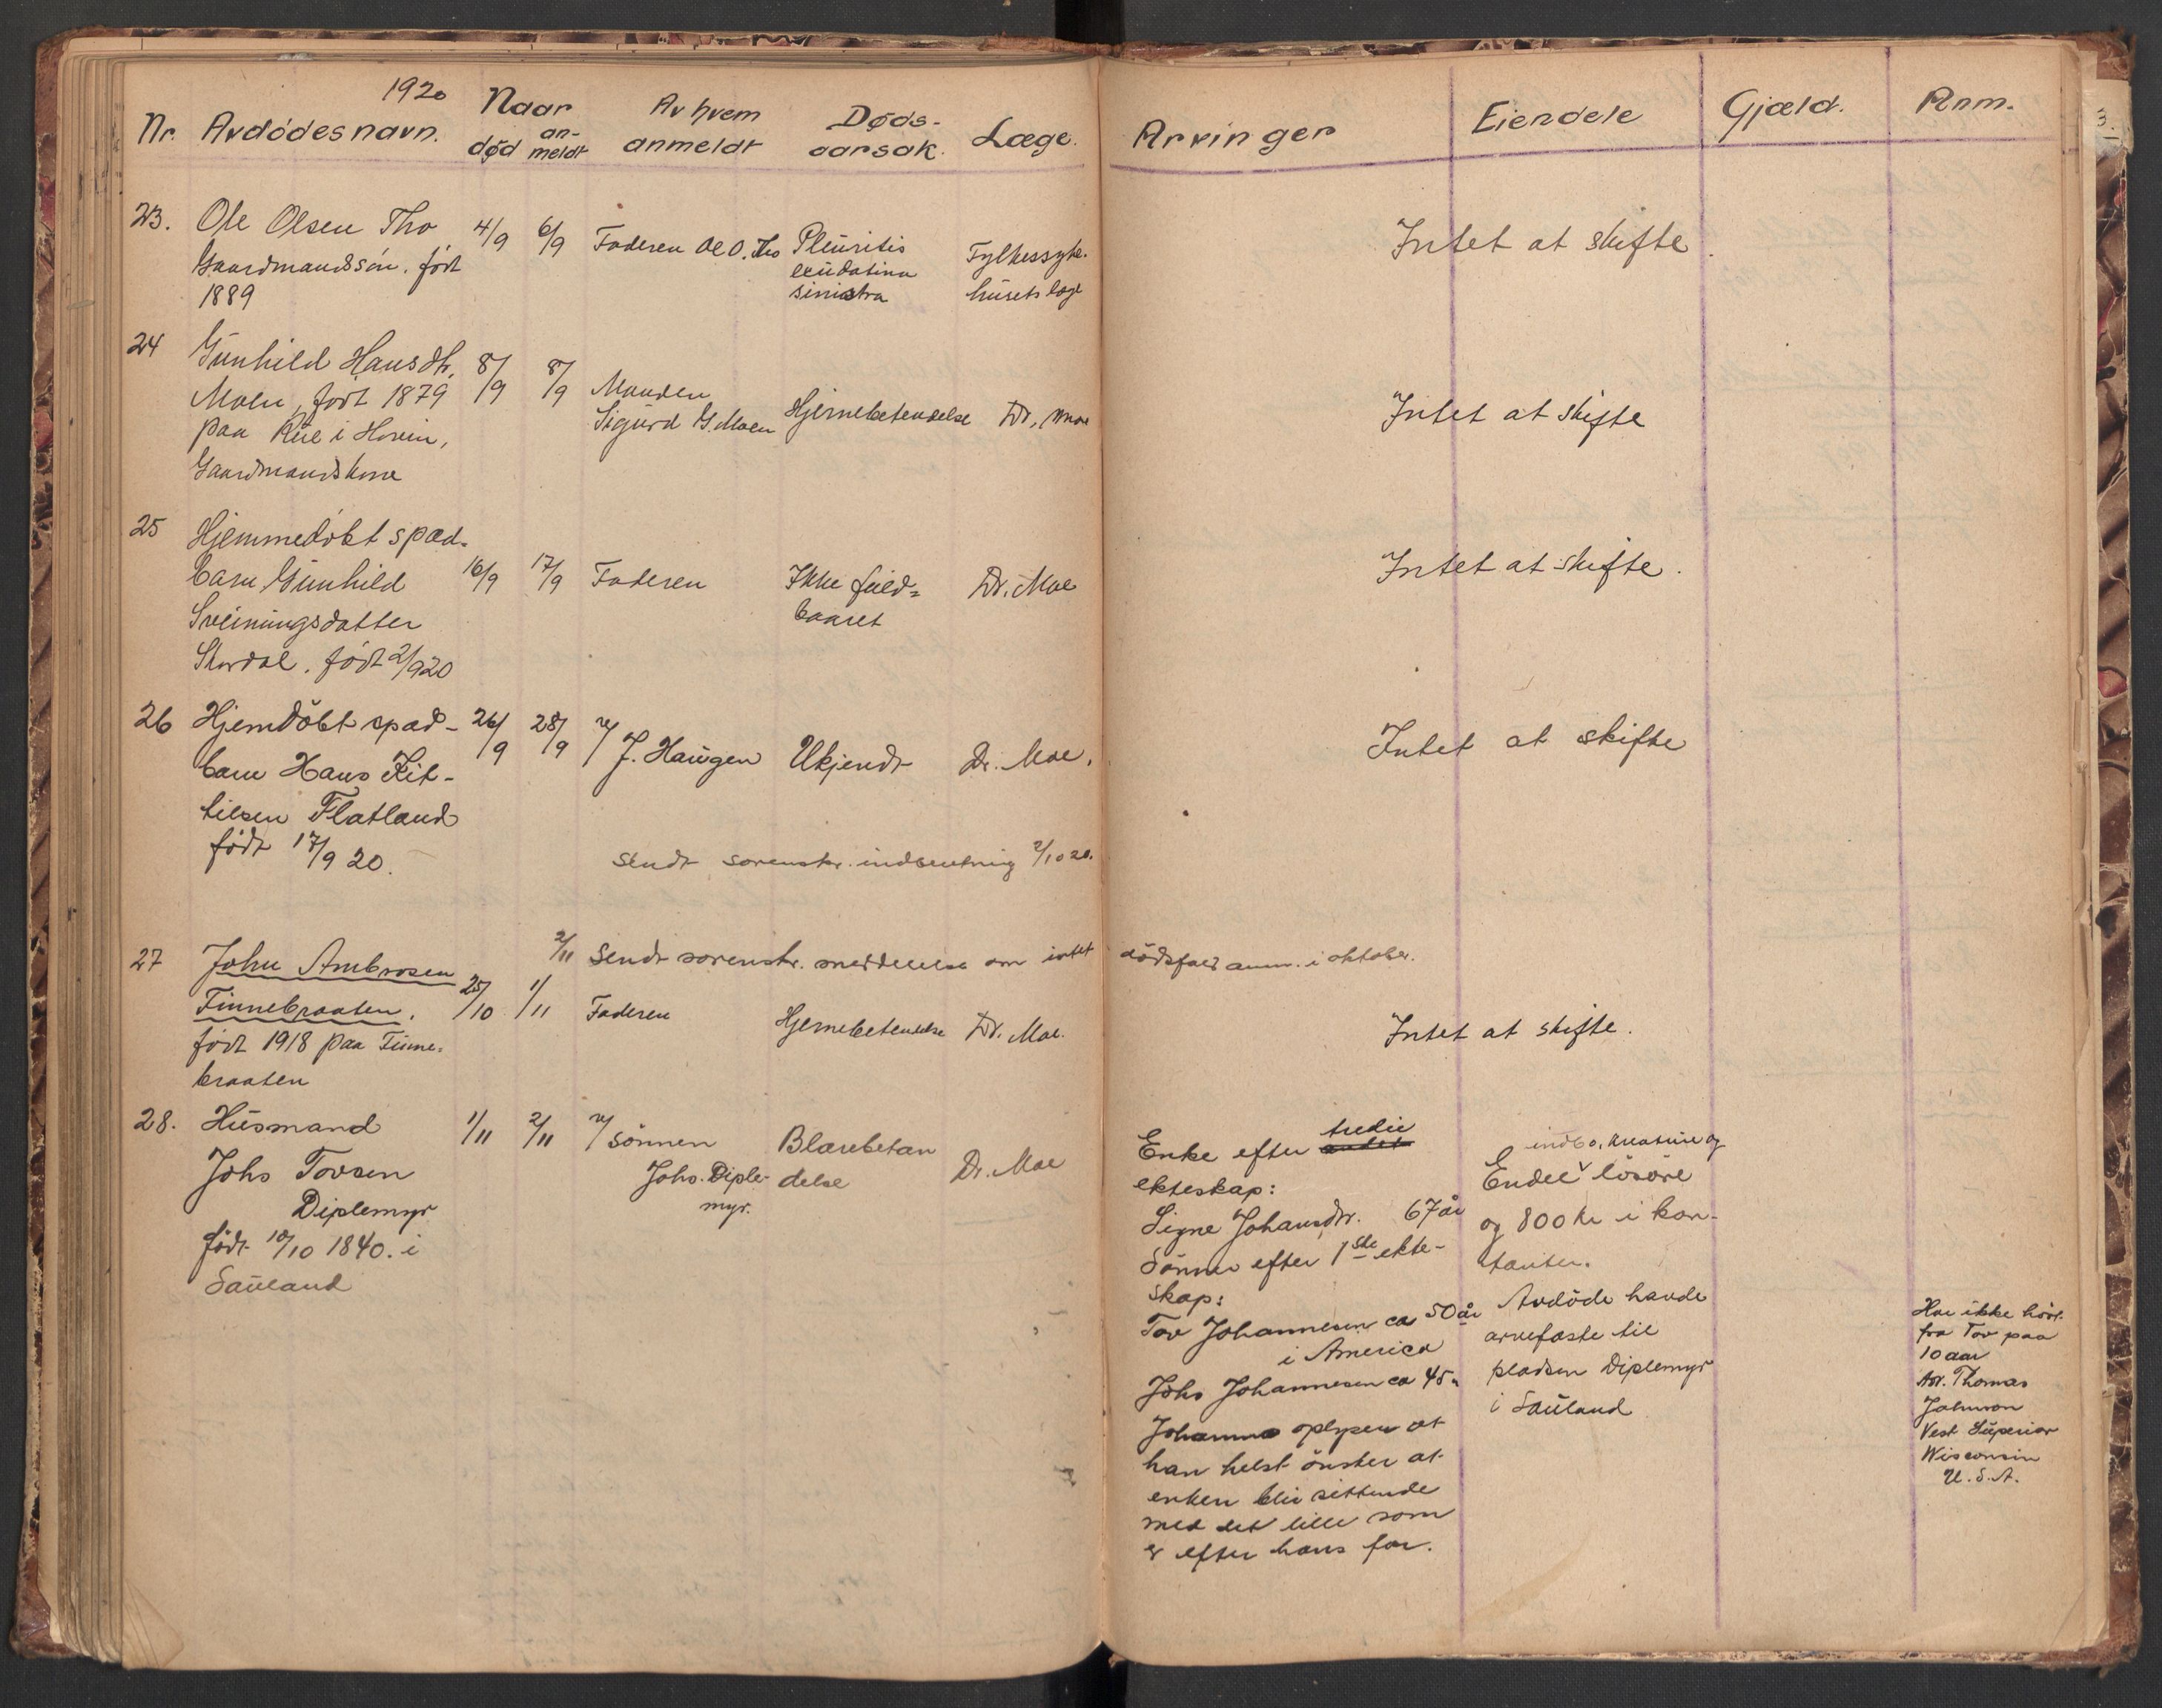 1920
Nr. Avdødes navn. Naar død an-meldt Av hvem anmeldt Døds-aarsak. Læge. Arvinger Eiendele Gjæld. Anm.
3.
23. Ole Olsen Tho 4/9 6/9 Faderen Ol O. Tho Pleuritis Fylkessyke- Intet at skifte.
Gaardmandssøn. født exudativa husets læge
1889 sinistra
24 Gunhild Hansdtr. 8/9 8/9 Manden
Moen, født 1879 Sigurd G. Moen Hjernebetendelse Dr. Moe Intet at skifte
paa Rue i Hovin,
Gaardmandskone
25 Hjemmedøbt spæd-
barn Gunhild 16/9 17/9 Faderen Ikke fuld= Dr. Moe Intet at skifte.
Sveinungsdatter baaret
Skordal. født 2/9 20
26 Hjemdøbt spæd- 26/9 28/9 v/
barn Hans Kit- J. Haugen Ukjendt Dr. Moe. Intet at skifte
tilsen Flatland
født 17/9 20.
Sendt sorenskr. indberetning 2/10 20.
2/11 Sendt sorenskr. meddelelse om intet dödsfald anm. i oktober.
27 John Ambrosen
Finnebraaten. 25/10 1/11 Faderen Hjernebetendelse Dr. Moe. Intet at skifte.
født 1918 paa Finne-
braaten
28. Husmand 1/11 2/11 v/ sönnen Blærebetæn
Johs Tovsen Johs. Diple- delse Dr. Moe
Diplemyr myr.
födt 10/10 1840. i
Sauland
Enke efter andet tredie
ekteskap:
Signe Johansdtr. 67 år
Sönner efter 1ste ekte-
skap:
Tov Johannesen ca 50 år
i America
Johs Johannesen ca 45 "
Johannes oplyser at
han helst önsker at
enken blir sittende
med det lille som
er efter hans far.
indbo, kreature og
Endel v lösöre
og 800 kr i kon-
tanter.
Avdöde havde
arvefæste til
pladsen Diplemyr
i Sauland
Har ikke hört
fra Tov paa
10 aar
Adr. Thomas
Johnson
Vest Superior
Wisconsin
U.S.A.